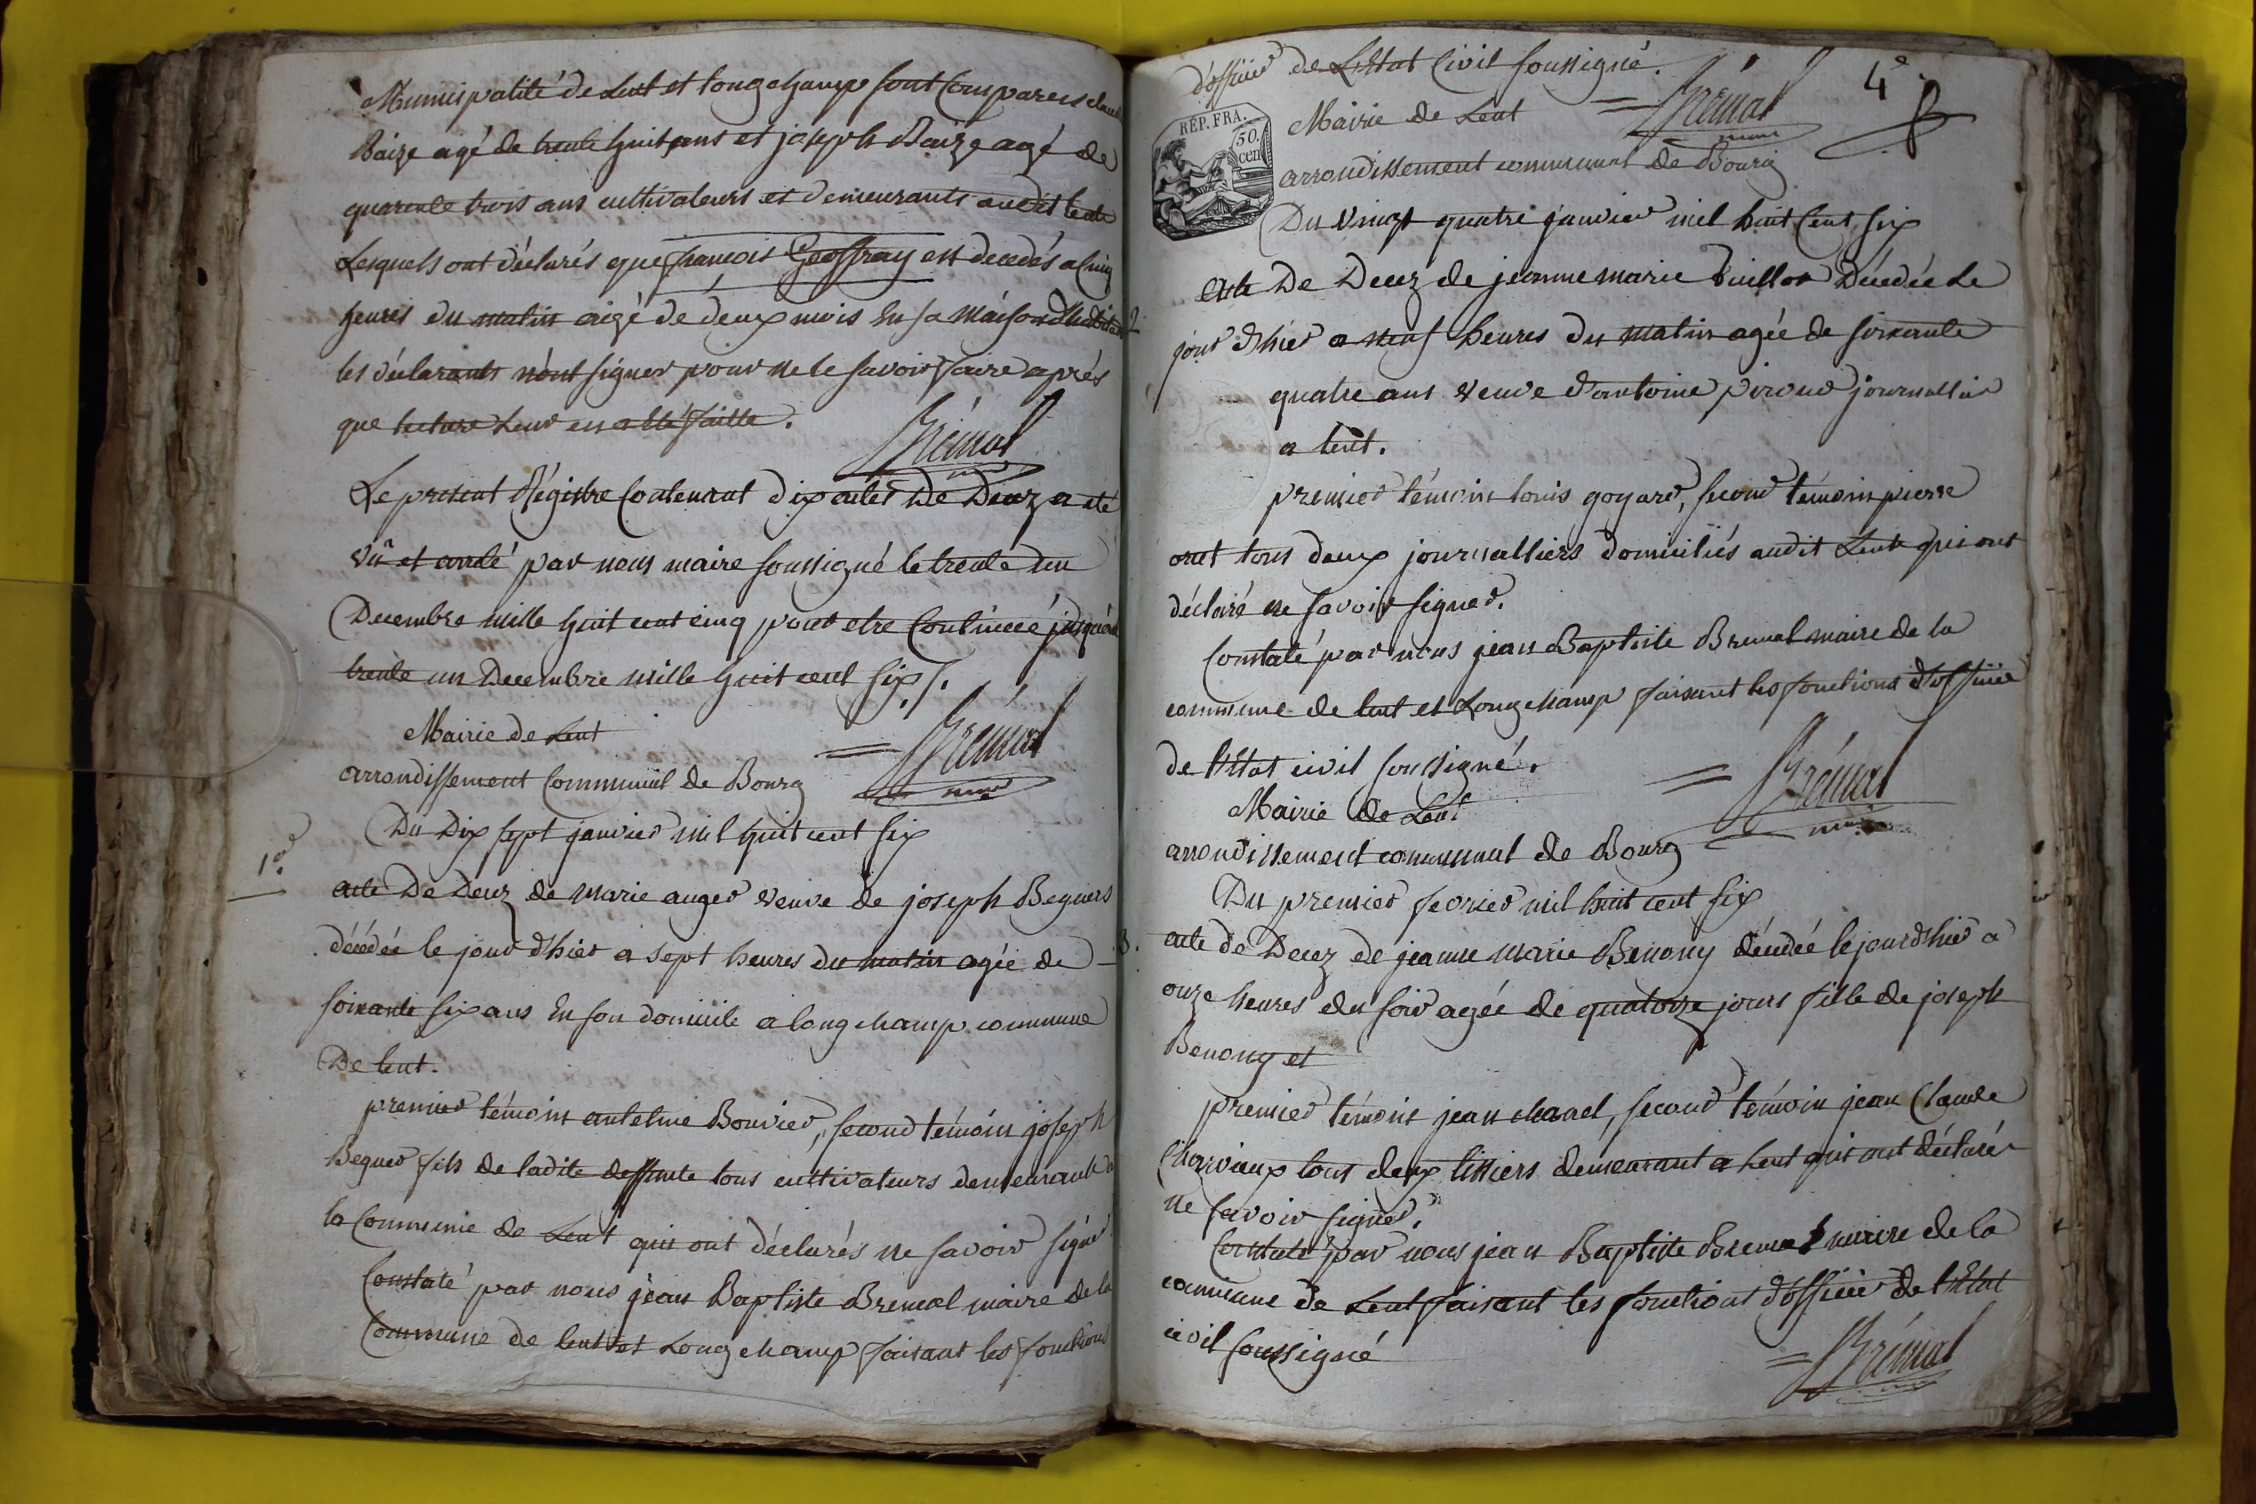 Municipalité de Lent et longchamp sont Comparers claude
Baize agé de trente huit ans et joseph Baize agé de
quarente trois ans cultivateurs et demeurants audit
Lesquels ont déclarés que françois Geoffray est decedés a cinq
heures du matin aigé de deux mois En sa máison d'habitation
les déclarants n'ont signer pour ne le savoir faire aprés
que lecture Leur en a été faitte.
Brémal
Le present Régistre Contenant dix actes De Decez a été
vû et arrelé par nous maire soussigné le trente un
Decembre mille huit cent cinq pour etre Continuéé jusqu'au
trente un Decembre mille huit cent six /.
Mairie de Lent
= Brémal
arrondissement Communal de Bourg
Du Dix sept janvier mil huit cent six
1er
acte De Decez de marie auger veuve de joseph Beguers
décédée le jour d'hier a sept heures du matin agée de
soixante six ans En son domicile a longchamp commune
De lent.
premier témoin antelme Bouvier, second témoin joseph
Beguer fils de ladite deffunte tous cultivateurs demeurant a
la Commune de Lent qui ont déclarés ne savoir signer
Constaté par nous jean Baptiste Bremal maire de la
Commune de lent et Longchamp faisant les fonctions
d'officier de L'Etat Civil soussigné.
4e
RÉP. FRA.
50.
cen
Mairie de Lent
= Brémal
arrondissement communal de Bourg
Du vingt quatre janvier mil huit Cent six
2
acte De Decez de jeanne marie Vuillod Décedée Le
jour d'hier a neuf heures du matin agée de soixante
quatre ans veuve d'antoine piroud journallier
a lent.
premier témoin louis goyard, second témoin pierre
oret tous deux journalliers domiciliés audit Lent qui ont
déclaré ne savoir signer.
Constaté par nous jean Baptiste Bremal maire de la
commune de lent et Longchamp faisant les fonctions d'officier
de l'Etat civil soussigné.
= Brémal
Mairie de Lent
arrondissement communal de Bourg
Du premier fevrier mil huit cent six
3.
acte de Decez de jeanne marie Benony décédée le jour d'hier a
onze heures du soir agée de quatorze jours fille de joseph
Benony et
premier témoin jean, second témoin jean Claude
Charvaux tous deux tissiers demeurant a Lent qui ont déclarés
ne savoir signer.
Constaté par nous jean Baptiste Bremal maire de la
commune de Lent faisant les fonctions d'officier de l'Etat
civil soussigné
= Brémal